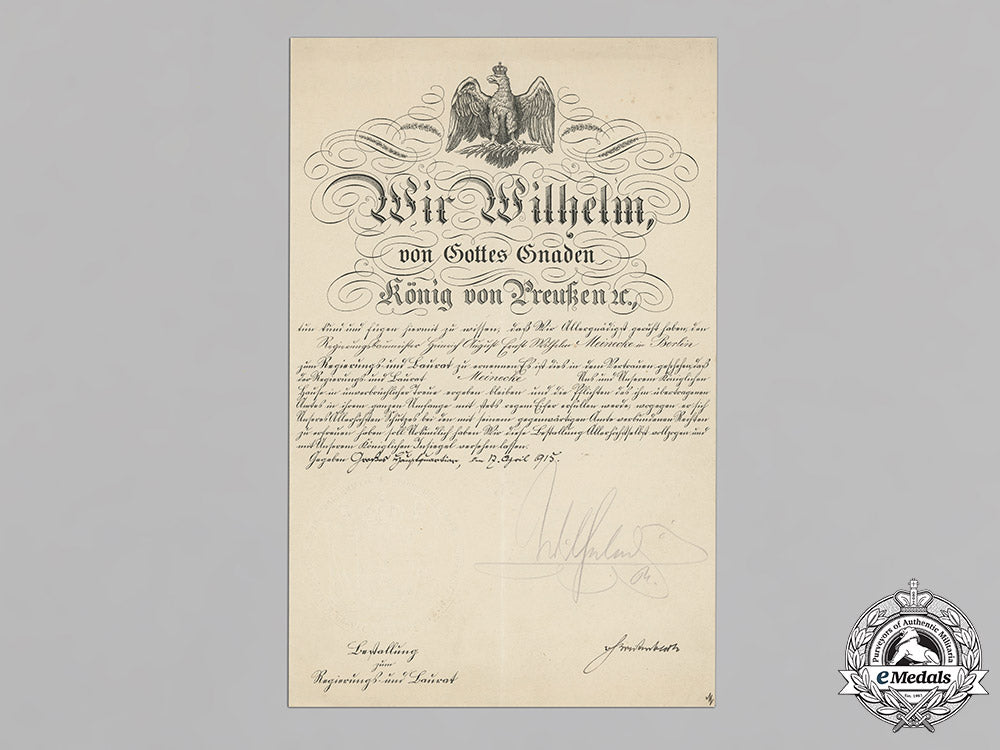 Wir Wilhelm,
von Gottes Gnaden
König von Preußen ꝛc.,
tun kund und fügen hiermit zu wissen, daß Wir Allergnädigst geruht haben, den
Regierungsbaumeister Heinrich August Ernst Wilhelm Meinecke in Berlin
zum Regierungs- und Baurat zu ernennen. Es ist dies in dem Vertrauen geschehen, daß
der Regierungs- und Baurat Meinecke Uns und Unserem Königlichen
Hause in unverbrüchlicher Treue ergeben bleiben und die Pflichten des ihm übertragenen
Amtes in ihrem ganzen Umfange mit stets regem Eifer erfüllen werde, wogegen er sich
Unseres Allerhöchsten Schutzes bei den mit seinem gegenwärtigen Amte verbundenen Rechten
zu erfreuen haben soll. Urkundlich haben Wir diese Bestallung Allerhöchstselbst vollzogen und
mit Unserem Königlichen Insiegel versehen lassen.
Gegeben Großes Hauptquartier, den 17. April 1915.
Wilhelm
R.
Bestallung
zum
Regierungs- und Baurat
Purveyors of Authentic Militaria
eMedals